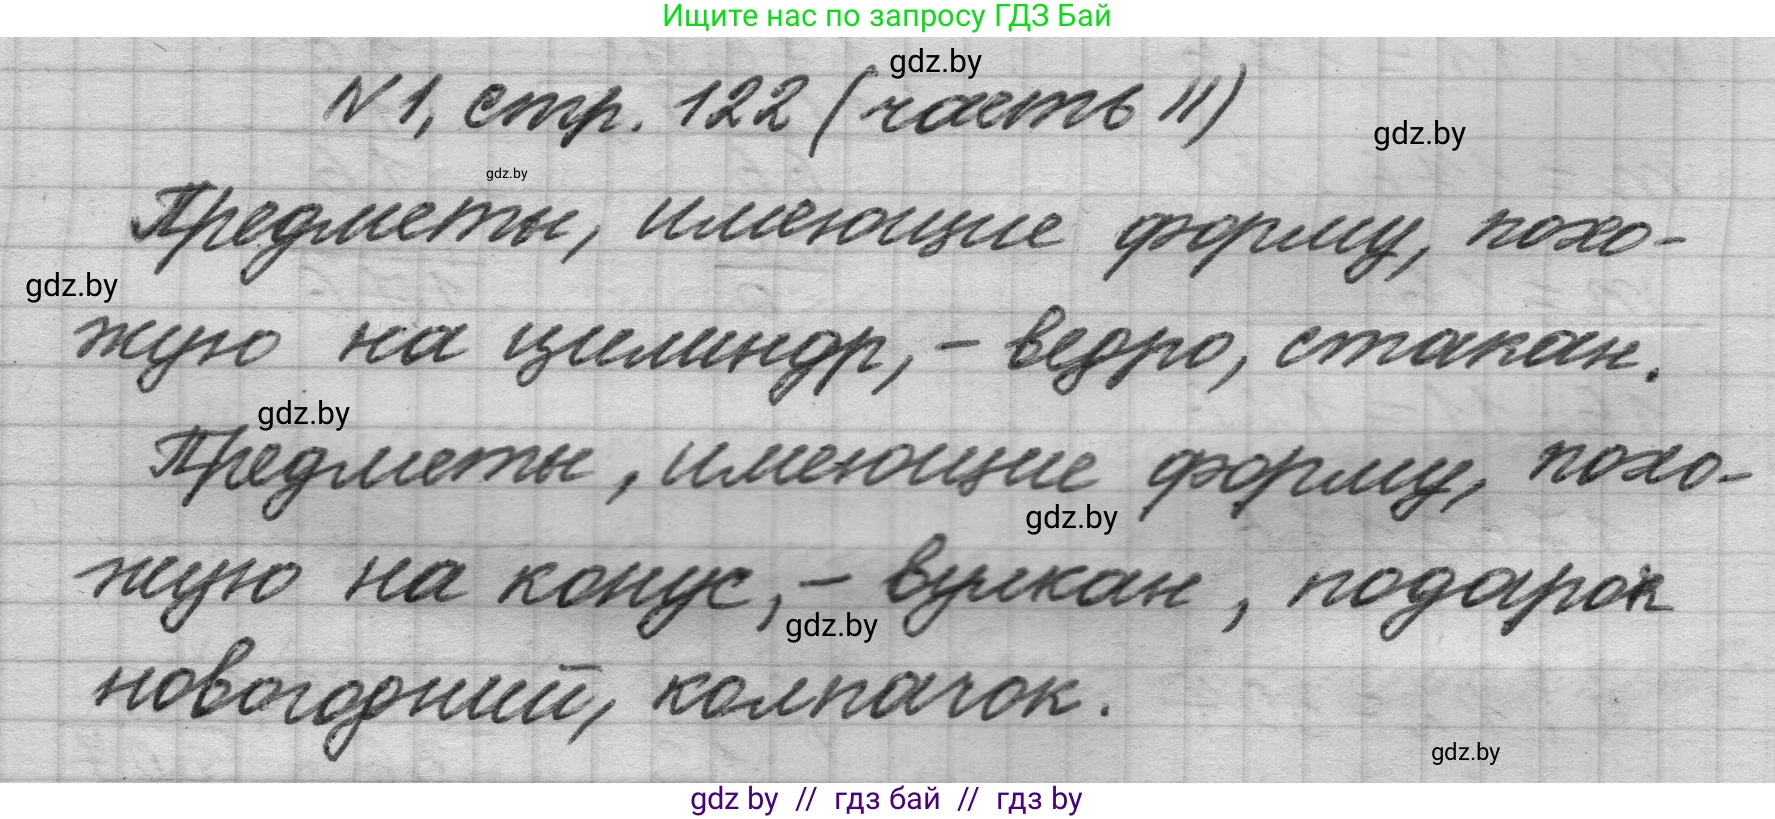 Ищите нас по запросу ГДЗ Бай
gdz.by
№1, стр. 122 (часть II)
gdz.by
gdz.by
Предметы, имеющие форму, похо-
gdz.by
жую на цилиндр, - ведро, стакан.
gdz.by
Предметы, имеющие форму, похо-
gdz.by
жую на конус, - вулкан, подарок
gdz.by
новогодний, колпачок.
gdz.by
gdz by // гдз бай // гдз by